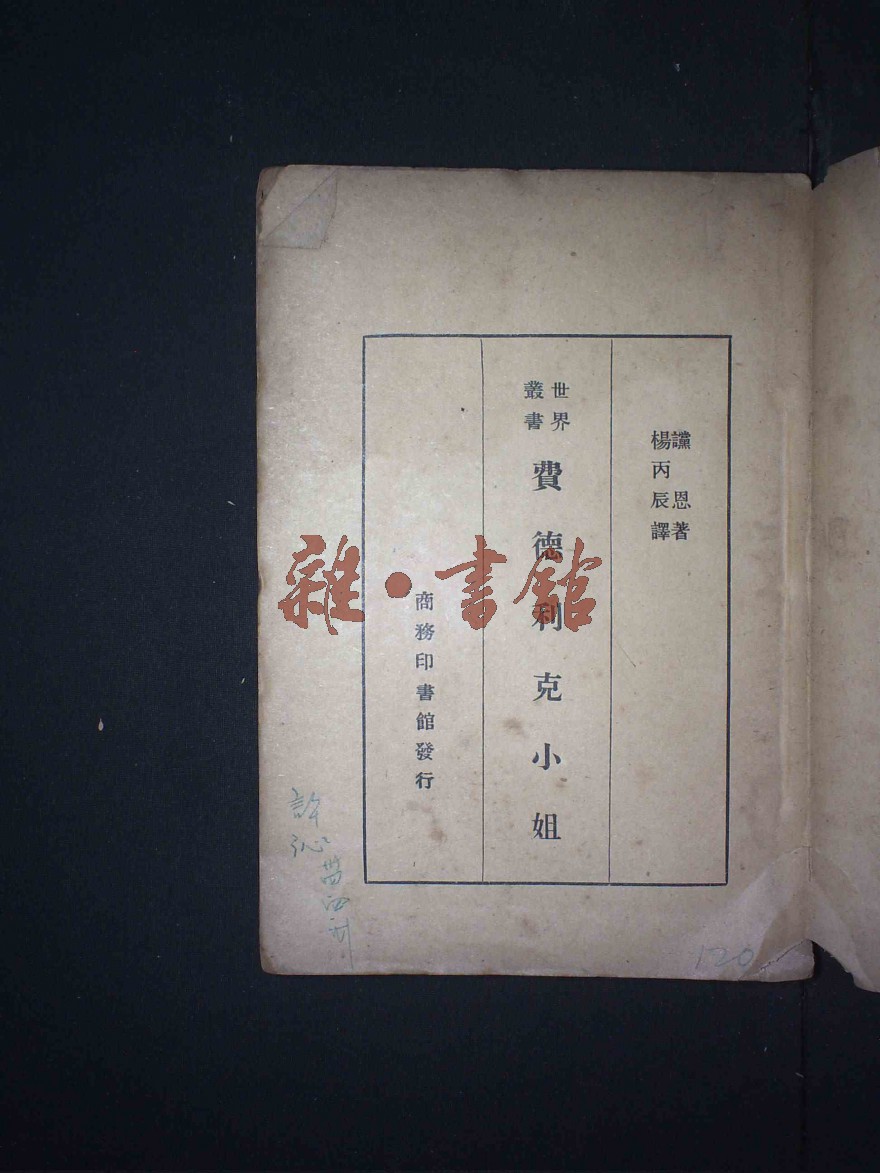 讜恩著
楊丙辰譯
世界
叢書
費德利克小姐
商務印書館發行
雜·書館
許沁
120